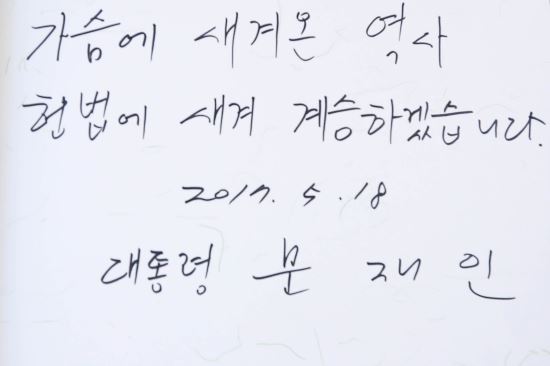 가슴에 새겨온 역사
헌법에 새겨 계승하겠습니다.
2017. 5. 18
대통령 문재인